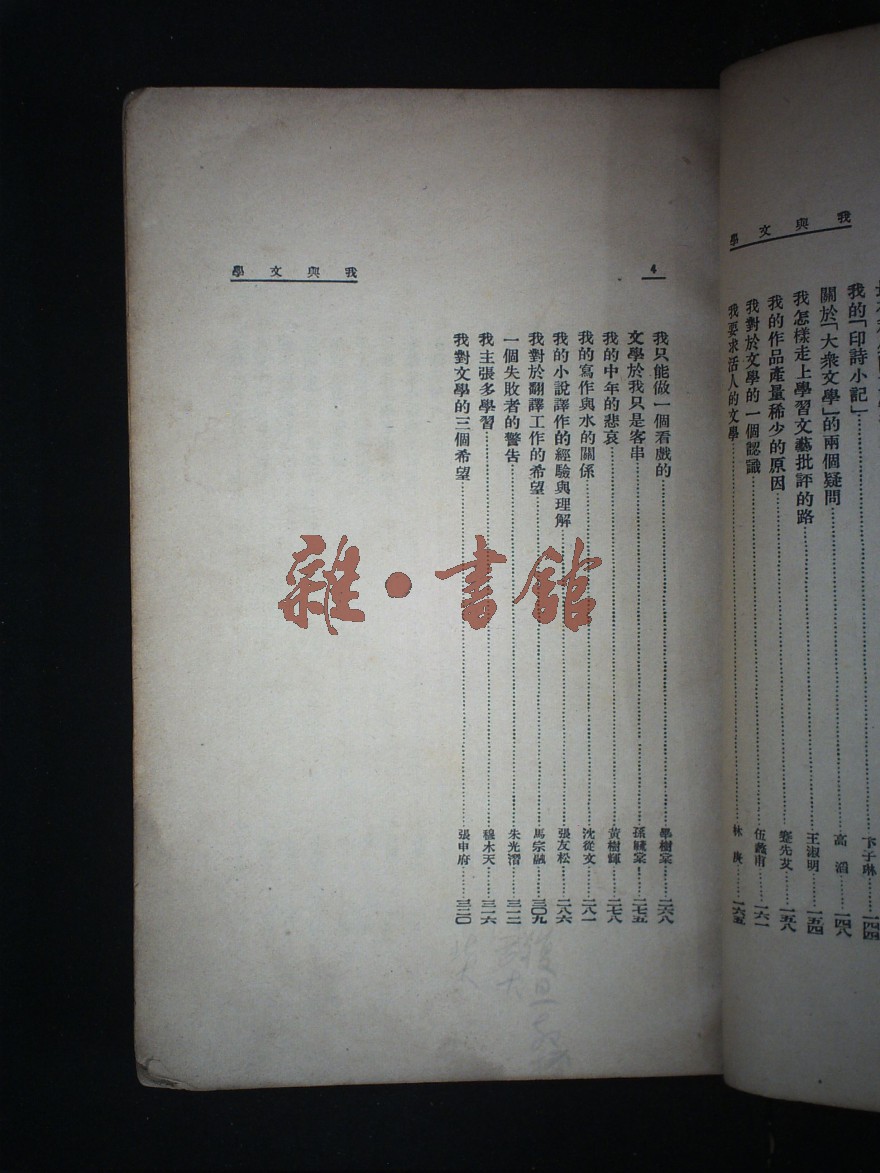 我與文學
我的「印詩小記」……卞之琳……一四四
關於「大衆文學」的兩個疑問……高滔……一四八
我怎樣走上學習文藝批評的路……王淑明……一五四
我的作品產量稀少的原因……蹇先艾……一五八
我對於文學的一個認識……伍蠡甫……一六一
我要求活人的文學……林庚……一六五
4
我與文學
我只能做一個看戲的……畢樹棠……一六八
文學於我只是客串……孫毓棠……一七五
我的中年的悲哀……黃樹輝……一七八
我的寫作與水的關係……沈從文……一八一
我的小說譯作的經驗與理解……張友松……一八六
我對於翻譯工作的希望……馬宗融……二〇九
一個失敗者的警告……朱光潛……二一二
我主張多學習……穆木天……二一六
我對文學的三個希望……張申府……二二〇
雜·書館